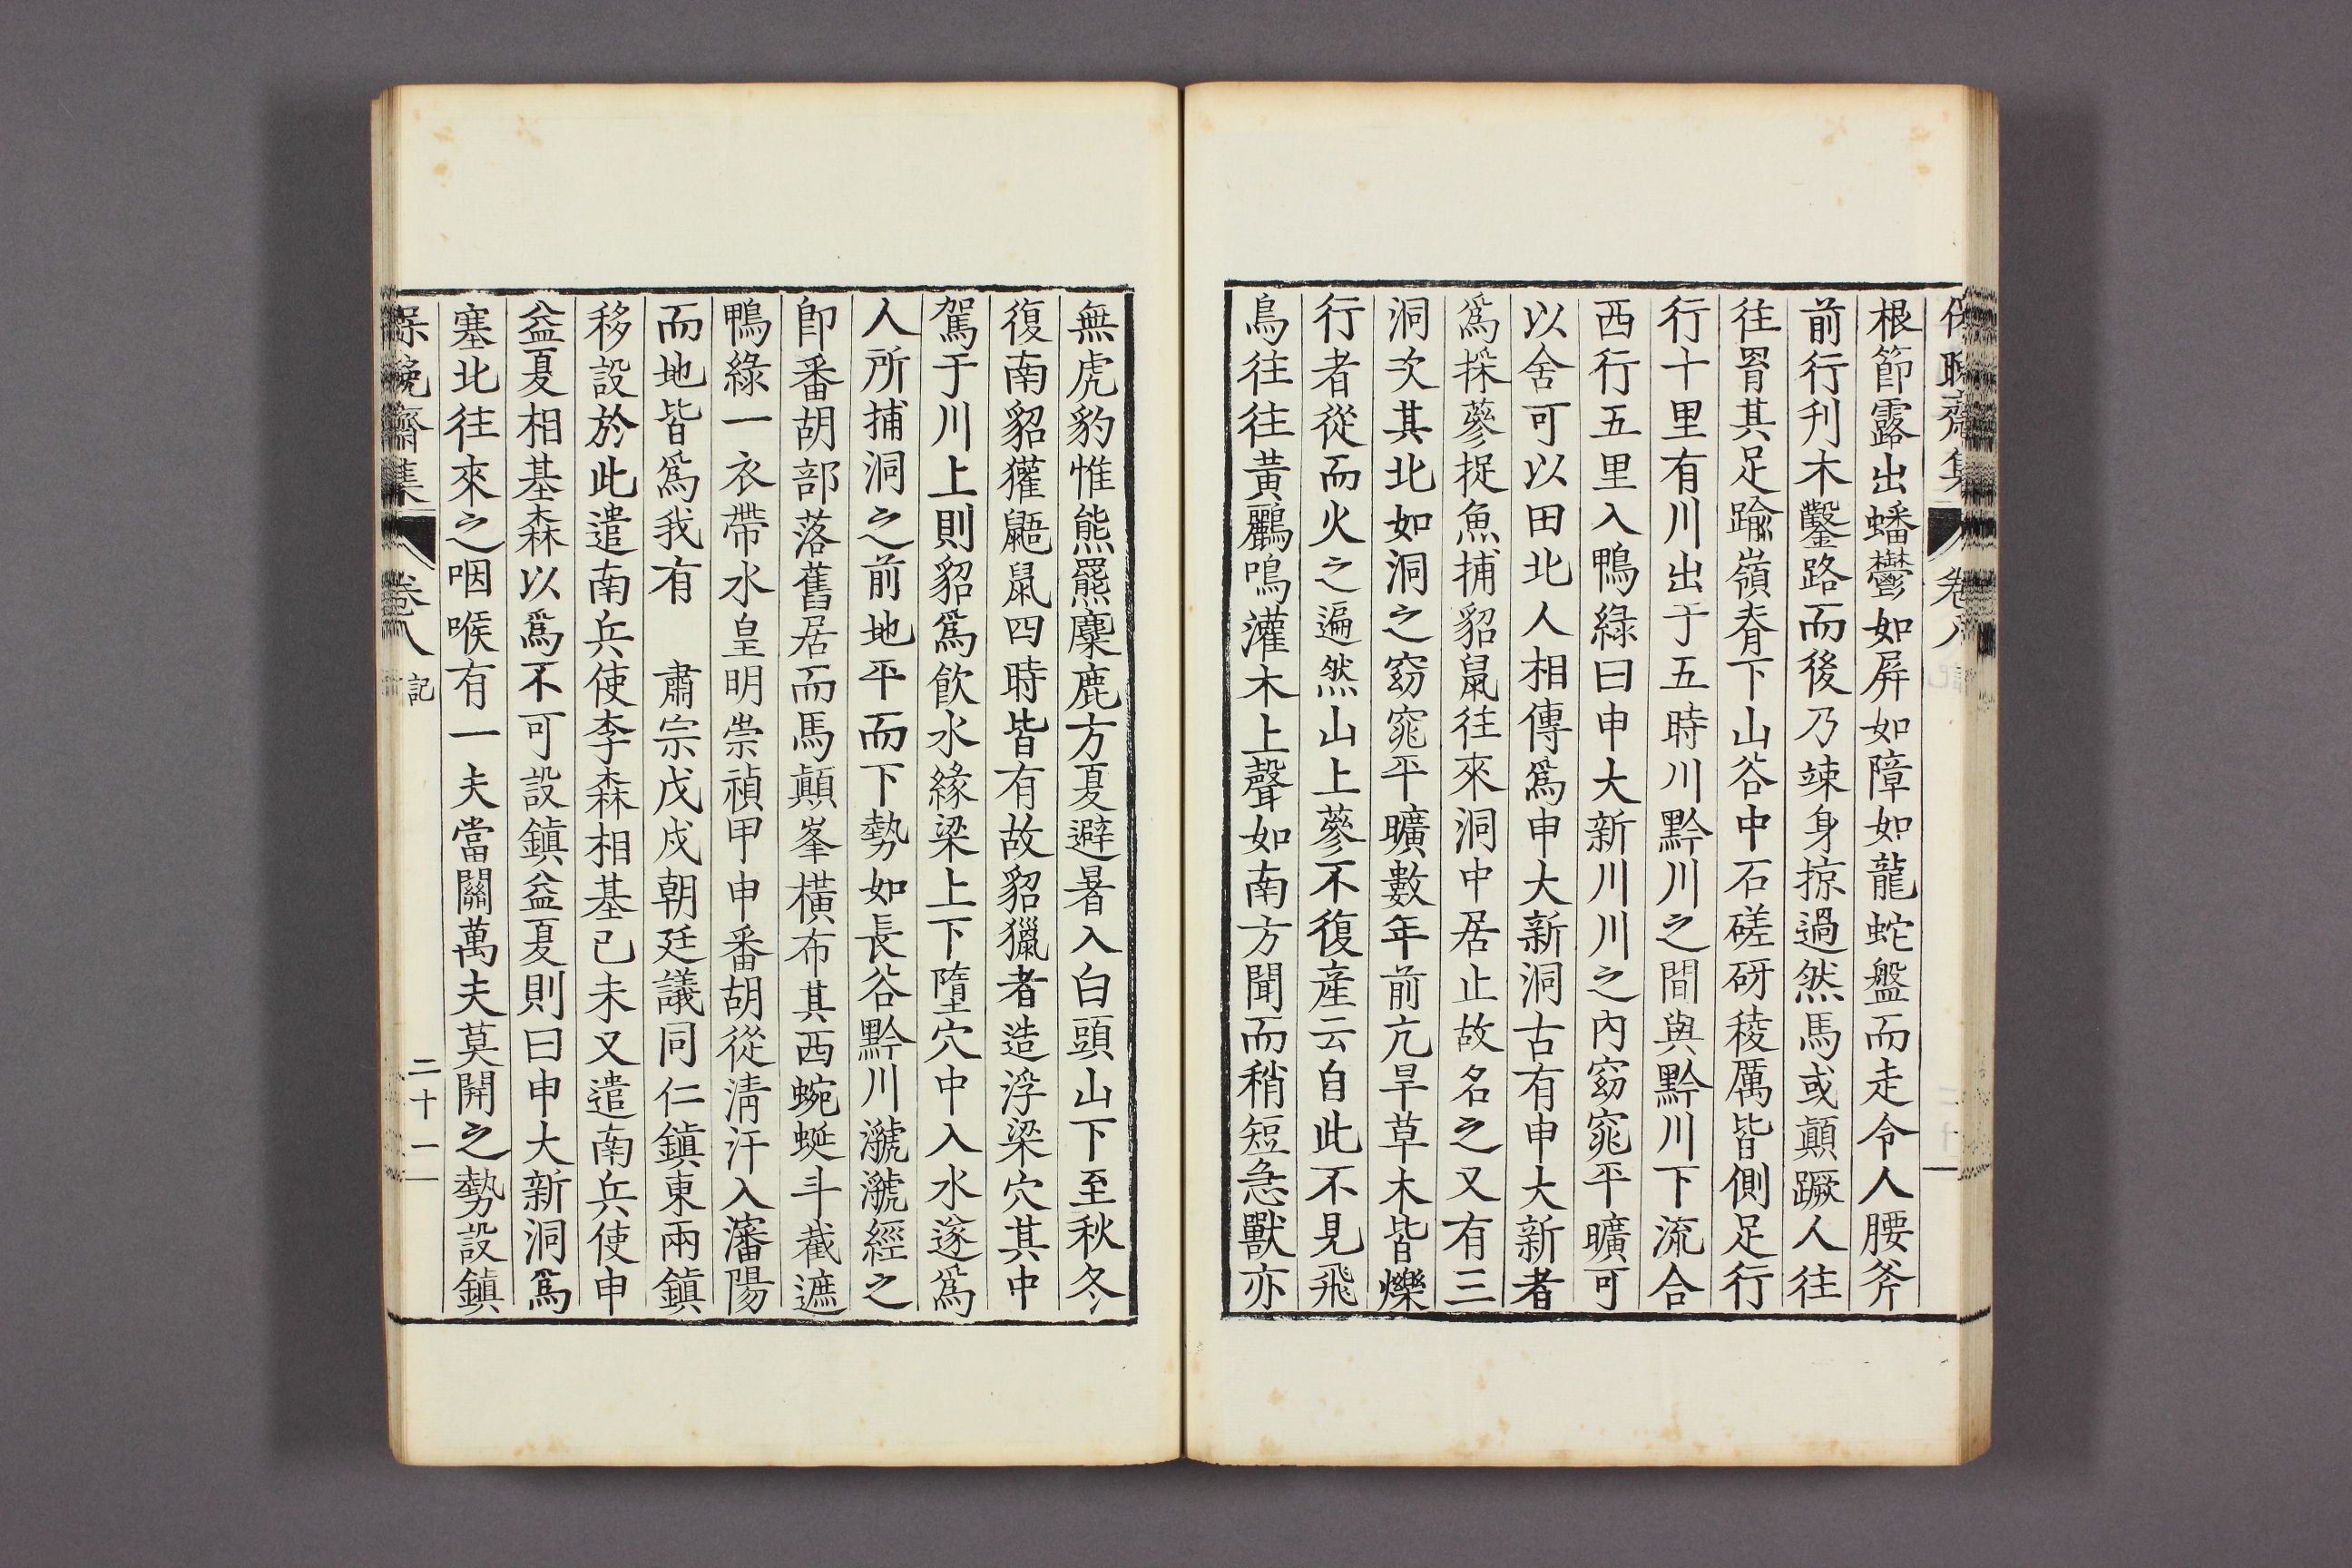 保晩齋集 卷八
根節露出蟠鬱如屛如障如龍蛇盤而走令人腰斧
前行刋木鑿路而後乃竦身掠過然馬或顚蹶人往
往罥其足踰嶺脊下山谷中石磋硏稜厲皆側足行
行十里有川出于五時川黔川之間與黔川下流合
西行五里入鴨綠曰申大新川川之內窈窕平曠可
以舍可以田北人相傳爲申大新洞古有申大新者
爲採蔘捉魚捕貂鼠往來洞中居止故名之又有三
洞次其北如洞之窈窕平曠數年前亢旱草木皆爍
行者從而火之遍然山上蔘不復産云自此不見飛
鳥往往黃鸝鳴灌木上聲如南方聞而稍短急獸亦
無虎豹惟熊羆麋鹿方夏避暑入白頭山下至秋冬
復南貂獾鼯鼠四時皆有故貂獵者造浮梁穴其中
駕于川上則貂爲飮水緣梁上下墮穴中入水遂爲
人所捕洞之前地平而下勢如長谷黔川㶁㶁經之
卽番胡部落舊居而馬顚峯橫布其西蜿蜒斗截遮
鴨綠一衣帶水皇明崇禎甲申番胡從淸汗入瀋陽
而地皆爲我有 肅宗戊戌朝廷議同仁鎭東兩鎭
移設於此遣南兵使李森相基己未又遣南兵使申
益夏相基森以爲不可設鎭益夏則曰申大新洞爲
塞北往來之咽喉有一夫當關萬夫莫開之勢設鎭
保晩齋集 卷八 記 二十一